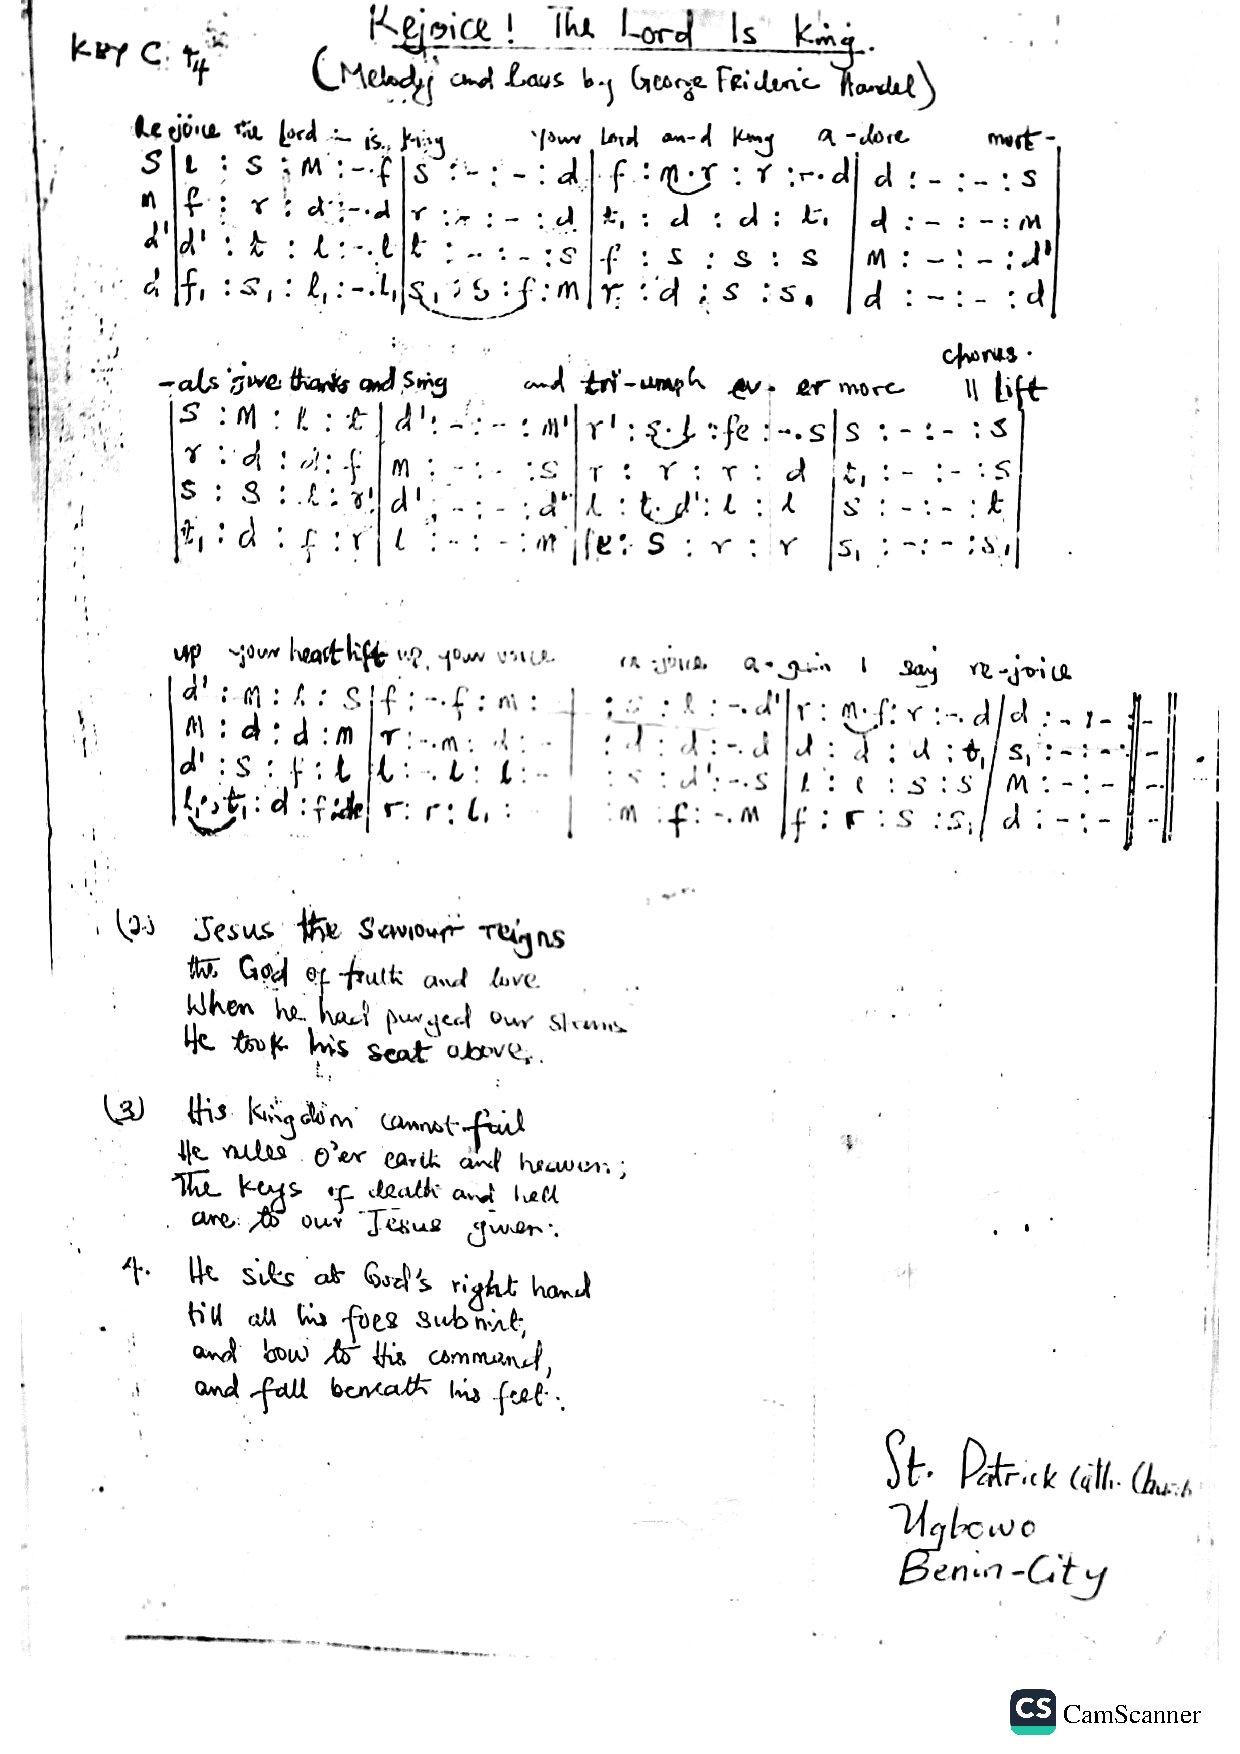 Rejoice! The Lord Is King.
KEY C. 4/4
(Melody and bass by George Frideric Handel)
Rejoice the Lord - is king your Lord an-d king a-dore mort-
S | l : s : m : -.f | s : - : - : d | f : m.r : r : -.d | d : - : - : s
m | f : r : d : -.d | r : - : - : d | t₁ : d : d : t₁ | d : - : - : m
d' | d' : t : l : -.l | t : - : - : s | f : s : s : s | m : - : - : d'
d | f₁ : s₁ : l₁ : -.l₁ | s₁ : s : f : m | r : d : s : s₁ | d : - : - : d
chorus.
-als give thanks and sing and tri-umph ev-er more || Lift
| s : m : l : t | d' : - : - : m' | r' : s.l : fe : -.s | s : - : - : s
| r : d : d : f | m : - : - : s | r : r : r : d | t₁ : - : - : s
| s : s : l : r' | d' : - : - : d' | l : t.d' : l : l | s : - : - : t
| t₁ : d : f : r | l : - : - : m | fe : s : r : r | s₁ : - : - : s₁ |
up your heart lift up, your voice re-joice a-gain I say re-joice
| d' : m : l : s | f : -.f : m : | : l : -.d' | r : m.f : r : -.d / d : - : - || - ||
| m : d : d : m | r : -.m : d : - | : d : d : -.d | d : d : d : t₁ / s₁ : - : - : || - ||
d' : s : f : l | l : -.l : l : - | : s : d' : -.s | l : l : s : s / m : - : - || - ||
| l₁.t₁ : d : f : | r : r : l₁ : | : m : f : -.m | f : r : s : s₁ / d : - : - || - ||
(2) Jesus the Saviour reigns
the God of truth and love
When he had purged our
He took his seat above.
(3) His kingdom cannot fail
He rules o'er earth and heaven;
The keys of death and hell
are to our Jesus given.
4. He sits at God's right hand
till all his foes submit,
and bow to His command,
and fall beneath his feet.
St. Patrick Cath. Church
Ugbowo
Benin-City
CS CamScanner